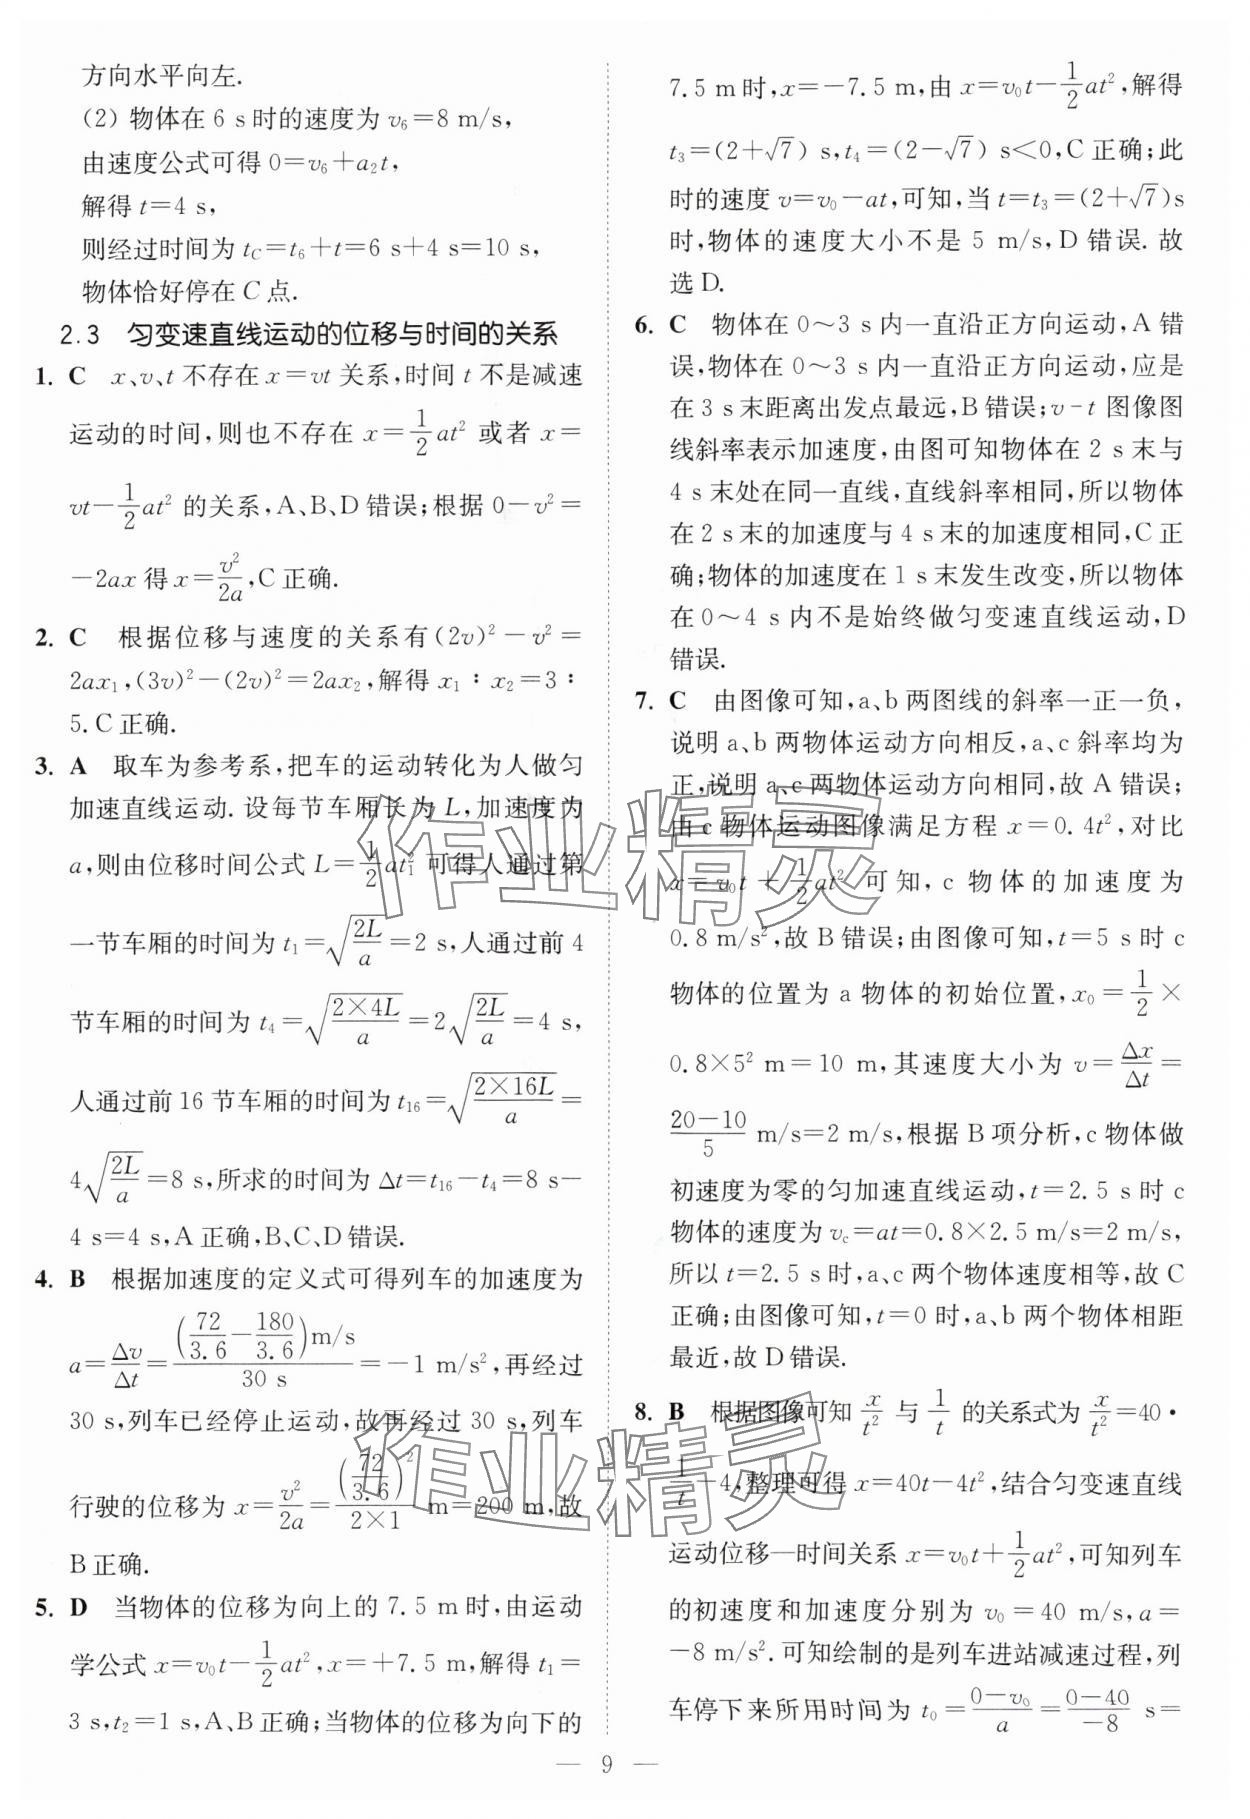 方向水平向左.
(2) 物体在 6 s时的速度为 v₆=8 m/s,
由速度公式可得 0=v₆+a₂t,
解得 t=4 s,
则经过时间为 t_C=t₆+t=6 s+4 s=10 s,
物体恰好停在 C 点.
2.3 匀变速直线运动的位移与时间的关系
1. C x、v、t 不存在 x=vt 关系,时间 t 不是减速
运动的时间,则也不存在 x=\frac{1}{2}at² 或者 x=
vt-\frac{1}{2}at² 的关系,A、B、D 错误;根据 0-v²=
-2ax 得 x=\frac{v²}{2a},C 正确.
2. C 根据位移与速度的关系有(2v)²-v²=
2ax₁,(3v)²-(2v)²=2ax₂,解得 x₁∶x₂=3∶
5.C 正确.
3. A 取车为参考系,把车的运动转化为人做匀
加速直线运动. 设每节车厢长为 L,加速度为
a,则由位移时间公式 L=\frac{1}{2}at₁² 可得人通过第
一节车厢的时间为 t₁=\sqrt{\frac{2L}{a}}=2 s,人通过前 4
节车厢的时间为 t₄=\sqrt{\frac{2×4L}{a}}=2\sqrt{\frac{2L}{a}}=4 s,
人通过前 16 节车厢的时间为 t₁₆=\sqrt{\frac{2×16L}{a}}=
4\sqrt{\frac{2L}{a}}=8 s,所求的时间为 Δt=t₁₆-t₄=8 s-
4 s=4 s,A 正确,B、C、D 错误.
4. B 根据加速度的定义式可得列车的加速度为
a=\frac{Δv}{Δt}=\frac{(\frac{72}{3.6}-\frac{180}{3.6})m/s}{30 s}=-1 m/s²,再经过
30 s,列车已经停止运动,故再经过 30 s,列车
行驶的位移为 x=\frac{v²}{2a}=\frac{(\frac{72}{3.6})²}{2×1} m=200 m,故
B 正确.
5. D 当物体的位移为向上的 7.5 m 时,由运动
学公式 x=v₀t-\frac{1}{2}at²,x=+7.5 m,解得 t₁=
3 s,t₂=1 s,A、B 正确;当物体的位移为向下的
7.5 m 时,x=-7.5 m,由 x=v₀t-\frac{1}{2}at²,解得
t₃=(2+√7) s,t₄=(2-√7) s<0,C 正确;此
时的速度 v=v₀-at,可知,当 t=t₃=(2+√7)s
时,物体的速度大小不是 5 m/s,D 错误. 故
选 D.
6. C 物体在 0～3 s 内一直沿正方向运动,A 错
误,物体在 0～3 s 内一直沿正方向运动,应是
在 3 s 末距离出发点最远,B 错误;v-t 图像图
线斜率表示加速度,由图可知物体在 2 s 末与
4 s末处在同一直线,直线斜率相同,所以物体
在 2 s 末的加速度与 4 s 末的加速度相同,C 正
确;物体的加速度在 1 s 末发生改变,所以物体
在 0～4 s 内不是始终做匀变速直线运动,D
错误.
7. C 由图像可知,a、b 两图线的斜率一正一负,
说明 a、b 两物体运动方向相反,a、c 斜率均为
正,说明 a、c 两物体运动方向相同,故 A 错误;
由 c 物体运动图像满足方程 x=0.4t²,对比
x=v₀t+\frac{1}{2}at² 可知,c 物体的加速度为
0.8 m/s²,故 B 错误;由图像可知,t=5 s 时 c
物体的位置为 a 物体的初始位置,x₀=\frac{1}{2}×
0.8×5² m=10 m,其速度大小为 v=\frac{Δx}{Δt}=
\frac{20-10}{5} m/s=2 m/s,根据 B 项分析,c 物体做
初速度为零的匀加速直线运动,t=2.5 s 时 c
物体的速度为 v_c=at=0.8×2.5 m/s=2 m/s,
所以 t=2.5 s 时,a、c 两个物体速度相等,故 C
正确;由图像可知,t=0 时,a、b 两个物体相距
最近,故 D 错误.
8. B 根据图像可知 \frac{x}{t²} 与 \frac{1}{t} 的关系式为 \frac{x}{t²}=40·
\frac{1}{t}-4,整理可得 x=40t-4t²,结合匀变速直线
运动位移—时间关系 x=v₀t+\frac{1}{2}at²,可知列车
的初速度和加速度分别为 v₀=40 m/s,a=
-8 m/s². 可知绘制的是列车进站减速过程,列
车停下来所用时间为 t₀=\frac{0-v₀}{a}=\frac{0-40}{-8} s=
— 9 —
作业精灵
作业精灵